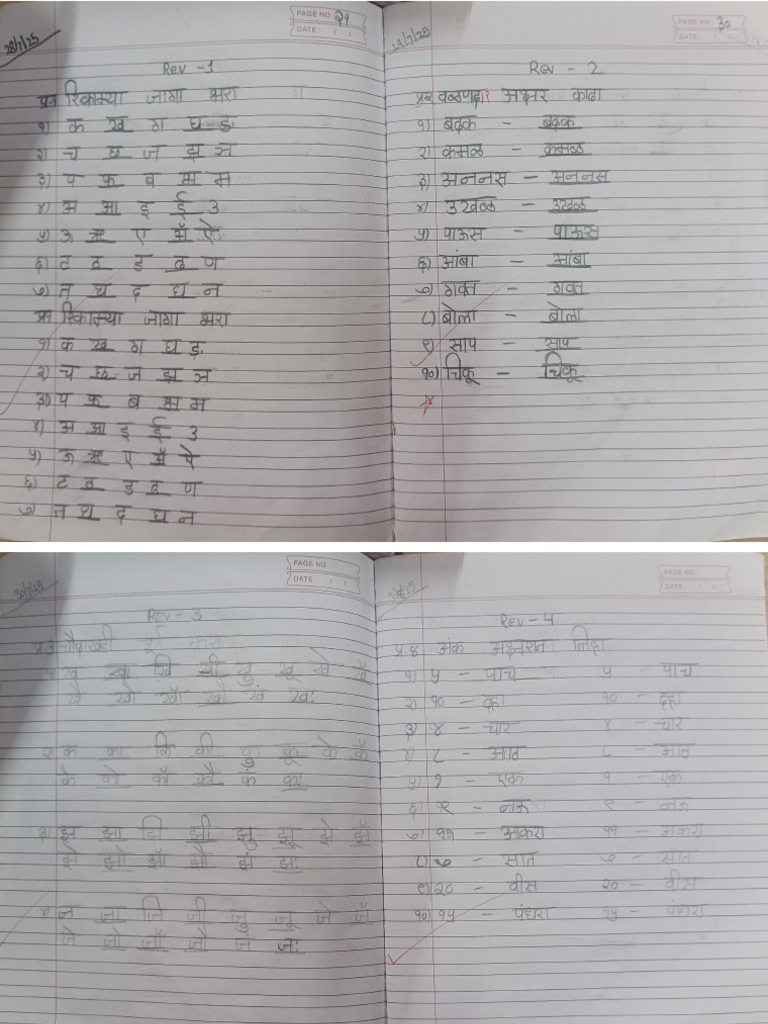 PAGE NO. २९
DATE: / /
28/7/25
Rev - 1
प्र१ रिकाम्या जागा भरा
१) क ख ग घ ङ
२) च छ ज झ ञ
३) प फ ब भ म
४) अ आ इ ई उ
५) ऊ ऋ ए ॲ ऐ
६) ट ठ ड ढ ण
७) त थ द ध न
प्र१ रिकाम्या जागा भरा
१) क ख ग घ ङ
२) च छ ज झ ञ
३) प फ ब भ म
४) अ आ इ ई उ
५) ऊ ऋ ए ॲ ऐ
६) ट ठ ड ढ ण
७) त थ द ध न
PAGE NO. ३०
DATE: / /
Rev - 2
प्र२ वळणदार अक्षर काढा
१) बदक - बदक
२) कमळ - कमळ
३) अननस - अननस
४) उखळ - उखळ
५) पाऊस - पाऊस
६) आंबा - आंबा
७) गवत - गवत
८) बोला - बोला
९) साप - साप
१०) चिकू - चिकू
PAGE NO.
DATE: / /
30/7/25
Rev - 3
प्र३ चौदाखडी
१) ख खा खि खी खु खू खे खॅ
खै खो खॉ खौ खं खः
२) क का कि की कु कू के कॅ
कै को कॉ कौ कं कः
३) झ झा झि झी झु झू झे झॅ
झै झो झॉ झौ झं झः
४) ज जा जि जी जु जू जे जॅ
जै जो जॉ जौ जं जः
PAGE NO.
DATE: / /
1/8/25
Rev - 4
प्र.४ अंक अक्षरात लिहा
१) ५ - पाच ५ - पाच
२) १० - दहा १० - दहा
३) ४ - चार ४ - चार
४) ८ - आठ ८ - आठ
५) १ - एक १ - एक
६) ९ - नऊ ९ - नऊ
७) ११ - अकरा ११ - अकरा
८) ७ - सात ७ - सात
९) २० - वीस २० - वीस
१०) १५ - पंधरा १५ - पंधरा